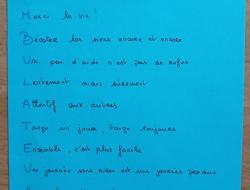 Merci la vie !
Bécoter les siens encore et encore
Un peu d'aide n'est pas de refus
Lentement mais sûrement
Attentif aux autres
Tango un jour, tango toujours
Ensemble, c'est plus facile
Une journée sans rires est une journée perdue